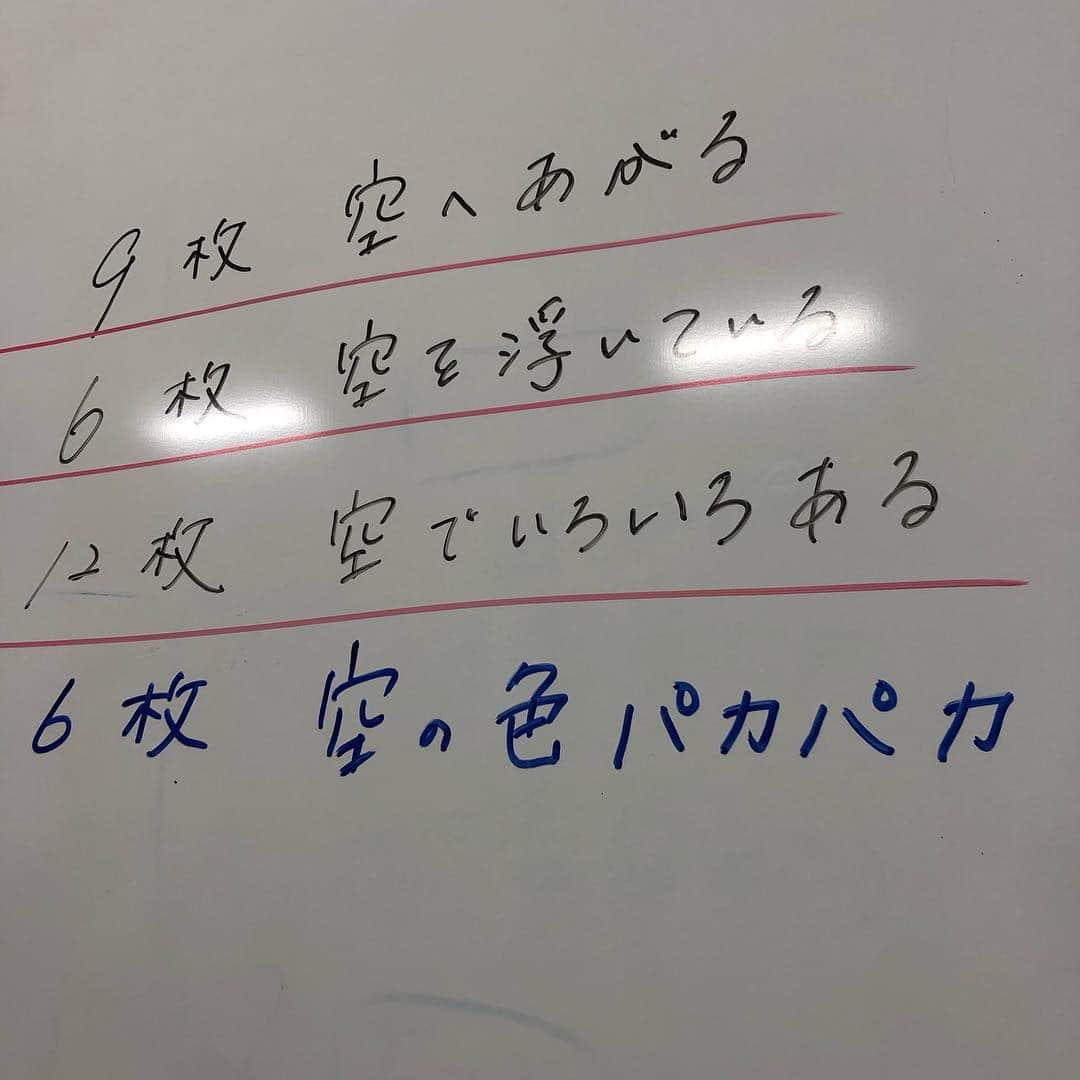 9枚 空へあがる
6枚 空を浮いている
12枚 空でいろいろある
6枚 空の色パカパカ